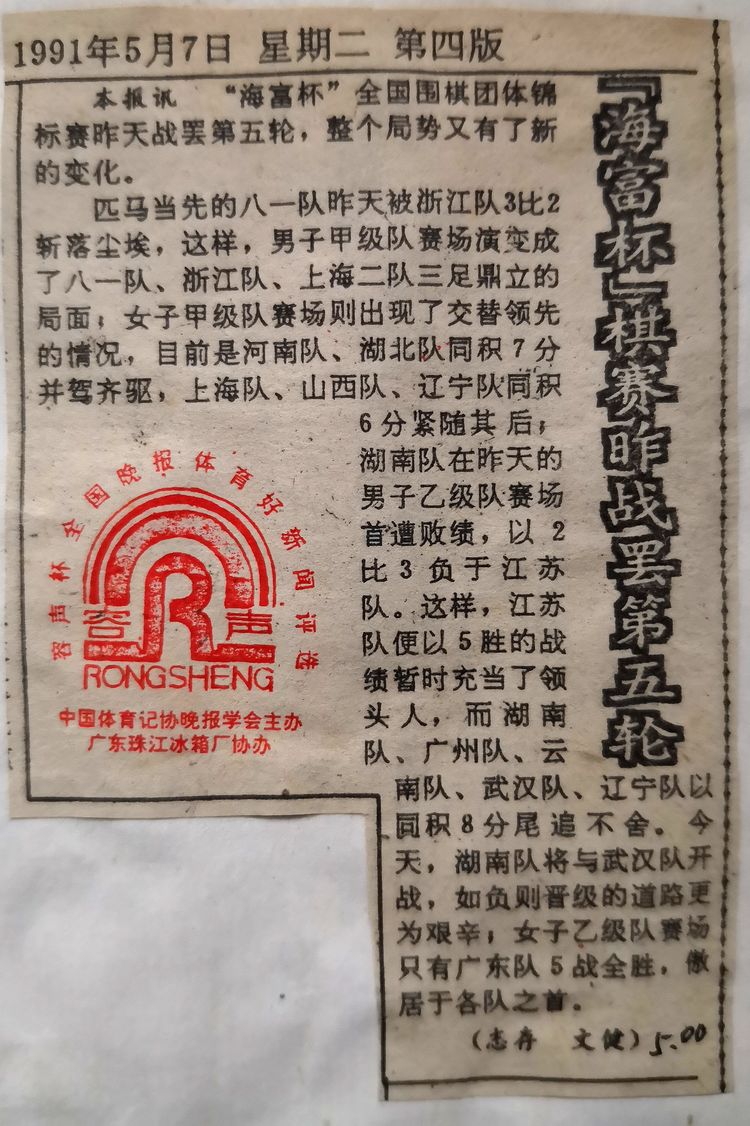 1991年5月7日 星期二 第四版
「海富杯」棋赛昨战罢第五轮
本报讯 “海富杯”全国围棋团体锦
标赛昨天战罢第五轮，整个局势又有了新
的变化。
匹马当先的八一队昨天被浙江队3比2
斩落尘埃，这样，男子甲级队赛场演变成
了八一队、浙江队、上海二队三足鼎立的
局面；女子甲级队赛场则出现了交替领先
的情况，目前是河南队、湖北队同积7分
并驾齐驱，上海队、山西队、辽宁队同积
6分紧随其后；
湖南队在昨天的
男子乙级队赛场
首遭败绩，以2
比3负于江苏
队。这样，江苏
队便以5胜的战
绩暂时充当了领
头人，而湖南
队、广州队、云
南队、武汉队、辽宁队以
同积8分尾追不舍。今
天，湖南队将与武汉队开
战，如负则晋级的道路更
为艰辛；女子乙级队赛场
只有广东队5战全胜，傲
居于各队之首。
（志存 文健）5.00
容声杯全国晚报体育好新闻评选
容声
RONGSHENG
中国体育记协晚报学会主办
广东珠江冰箱厂协办